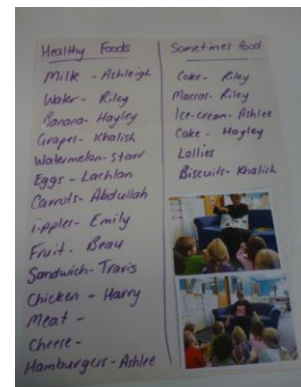 Healthy Foods
Milk - Ashleigh
Water - Riley
Banana - Hayley
Grapes - Khalish
Watermelon - Starr
Eggs - Lachlan
Carrots - Abdullah
Apples - Emily
Fruit - Beau
Sandwich - Travis
Chicken - Harry
Meat -
Cheese -
Hamburgers - Ashlee
Sometimes food
Coke - Riley
Maccas - Riley
Ice-cream - Ashlee
Cake - Hayley
Lollies
Biscuits - Khalish